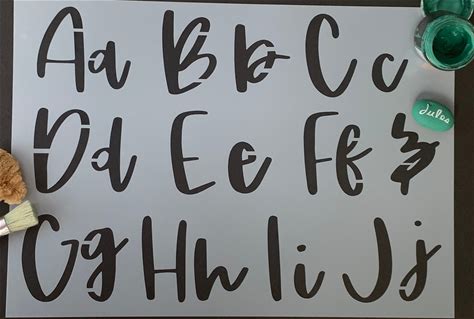 Aa Bb Cc
Dd Ee Ff &
Gg Hh Ii Jj